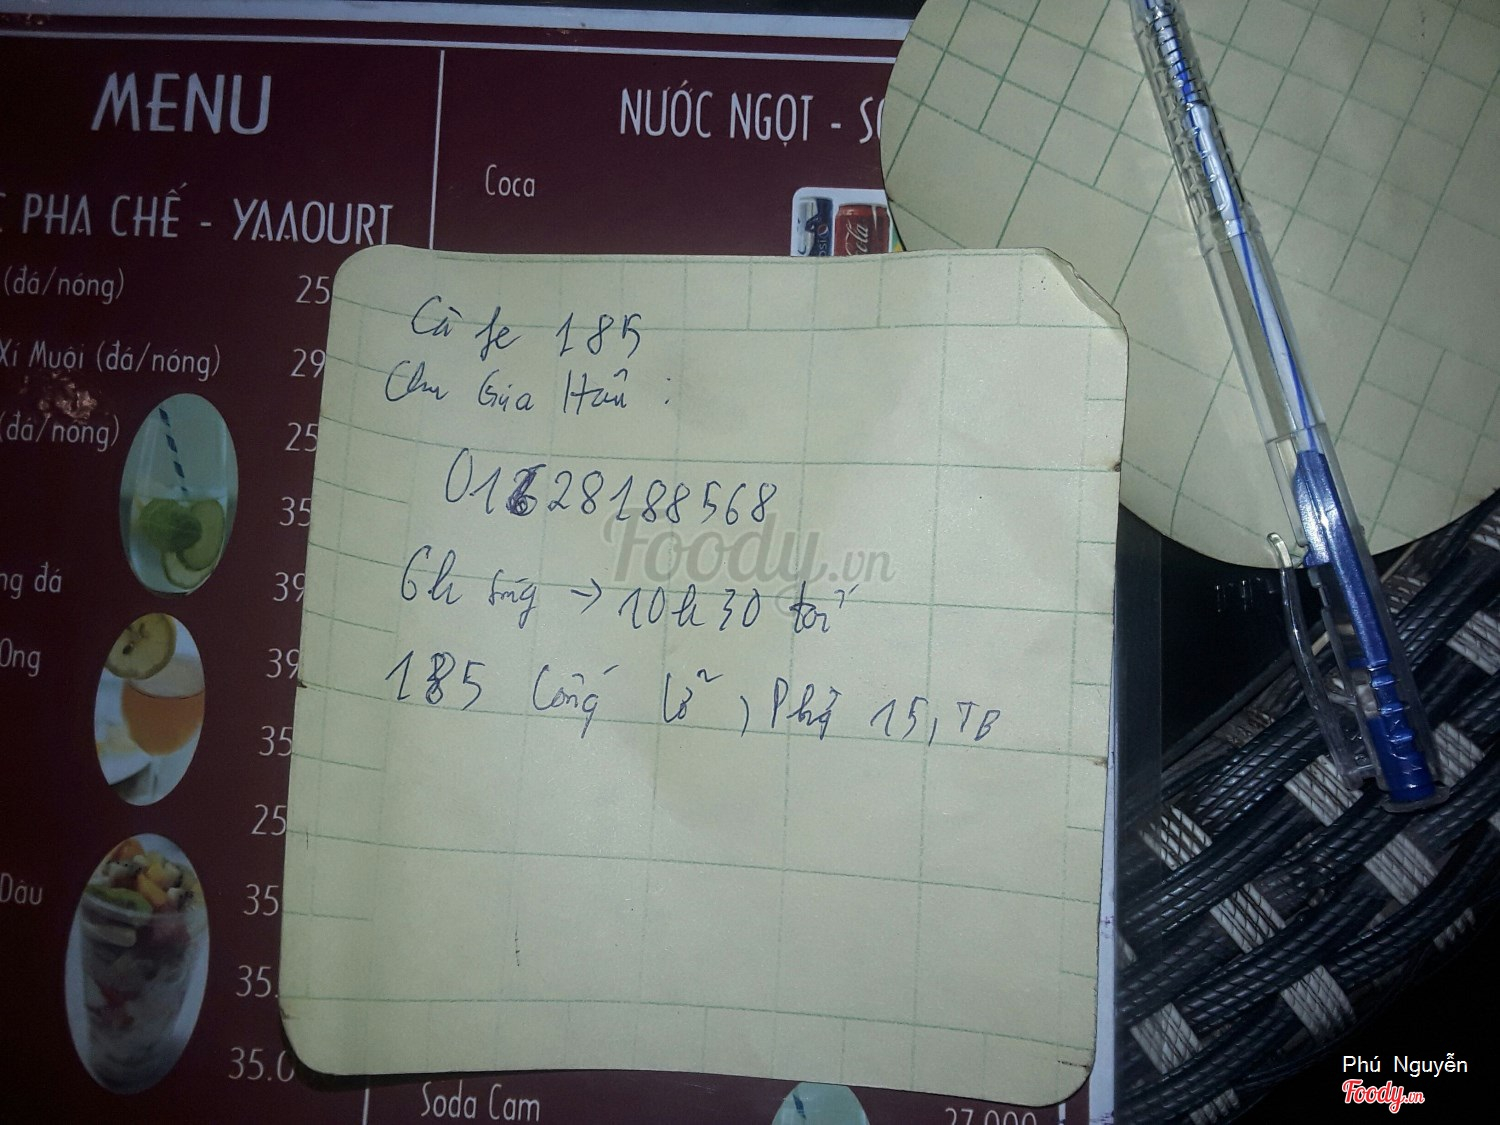 MENU
PHA CHẾ - YAAOURT
(đá/nóng) 25
Xí Muội (đá/nóng) 29
(đá/nóng) 25
35
ng đá 39
Ong 39
35
25
Dâu 35
35.
35.0
NƯỚC NGỌT - SO
Coca
Cà fe 185
Chu Gia Hân :
01628188568
6h sáng → 10h30 tối
185 Cống Lỡ, Phg 15, TB
Soda Cam 27.000
Foody.vn
Phú Nguyễn
Foody.vn